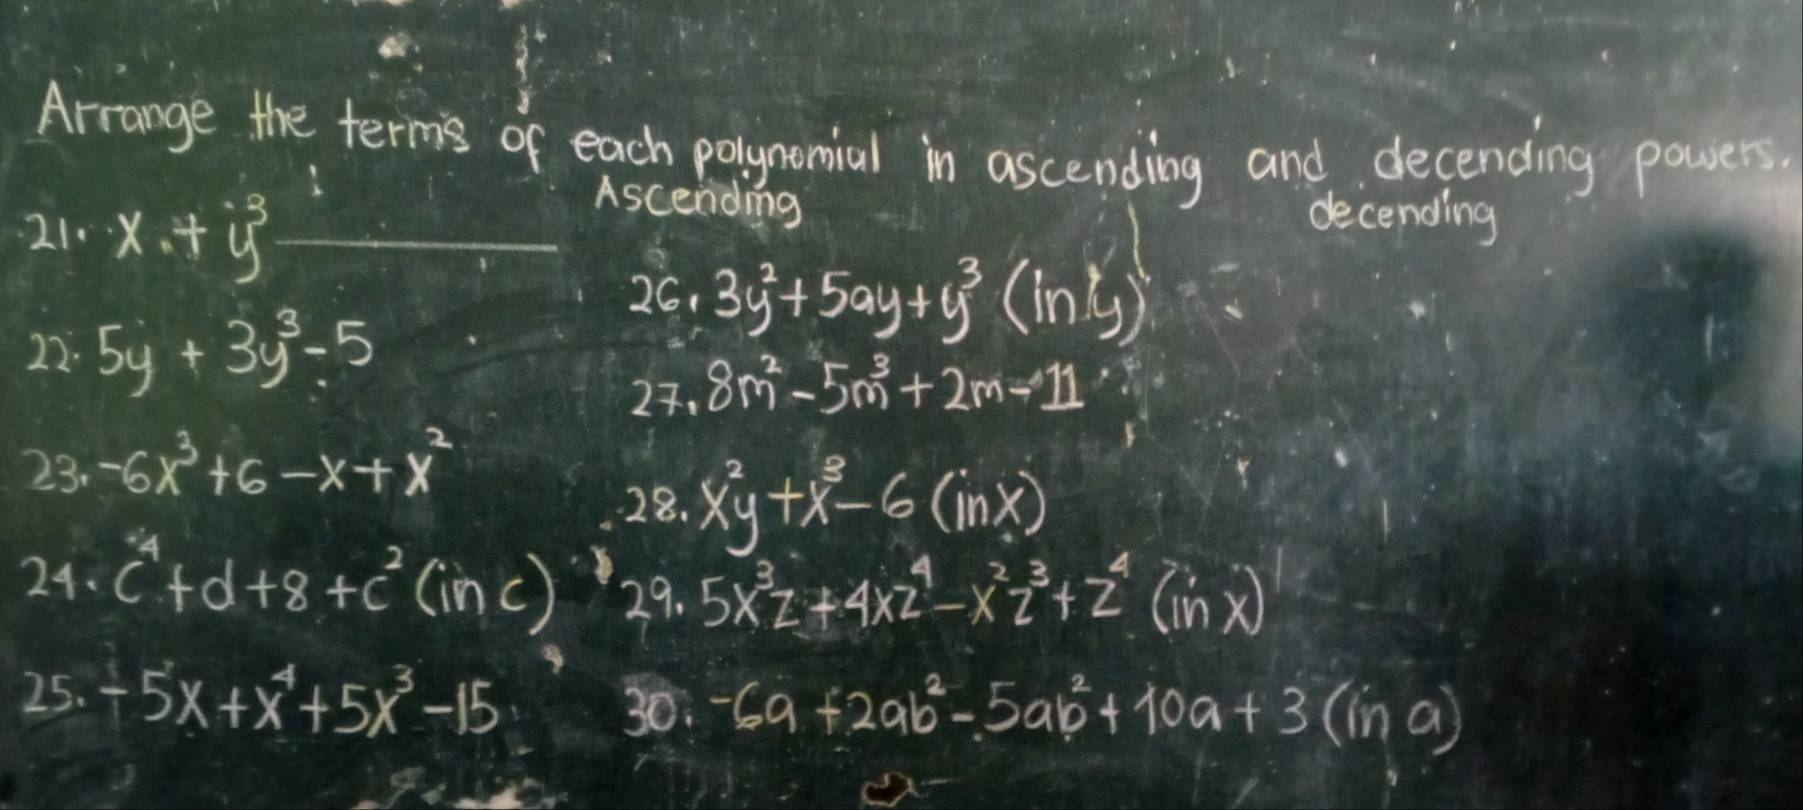 Arrange the terms of each polynomial in ascending and decending powers.
Ascending decending
21. x + y³ ________
22. 5y + 3y³ - 5
23. -6x³ + 6 - x + x²
24. c⁴ + d + 8 + c² (in c)
25. -5x + x⁴ + 5x³ - 15
26. 3y² + 5ay + y³ (in y)
27. 8m² - 5m³ + 2m - 11
28. x²y + x³ - 6 (in x)
29. 5x³z + 4xz⁴ - x²z³ + z⁴ (in x)
30. -6a + 2ab² - 5ab² + 10a + 3 (in a)